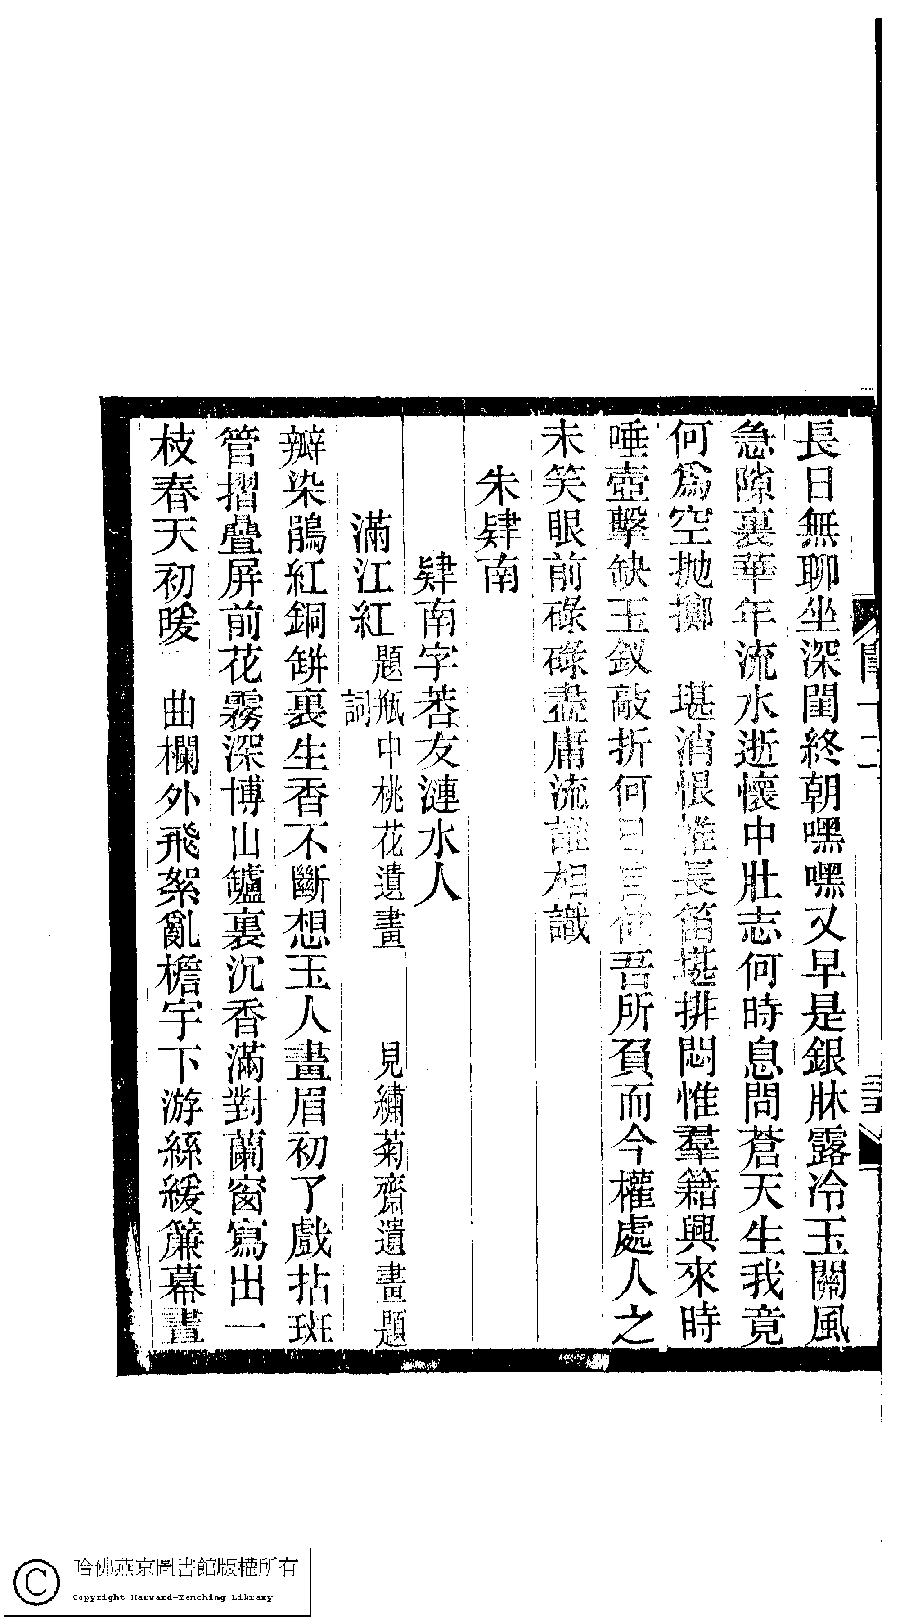 長日無聊坐深閨終朝嘿嘿又早是銀牀露冷玉關風
急隙裏華年流水逝懷中壯志何時息問蒼天生我竟
何爲空拋擲　堪消恨惟長笛堪排悶惟羣籍興來時
唾壺擊缺玉釵敲折何日吾所負而今權處人之
未笑眼前碌碌盡庸流誰相識
朱肄南
肄南字荅友漣水人
滿江紅　題瓶中桃花遺畫　見繡菊齋遺畫題詞
瓣染鵑紅銅缾裏生香不斷想玉人畫眉初了戲拈斑
管摺疊屏前花霧深博山鑪裏沉香滿對蘭窗寫出一
枝春天初暖　曲欄外飛絮亂檐宇下游絲緩簾幕晝
閨十二
三三
哈佛燕京圖書館版權所有
Copyright Harvard-Yenching Library